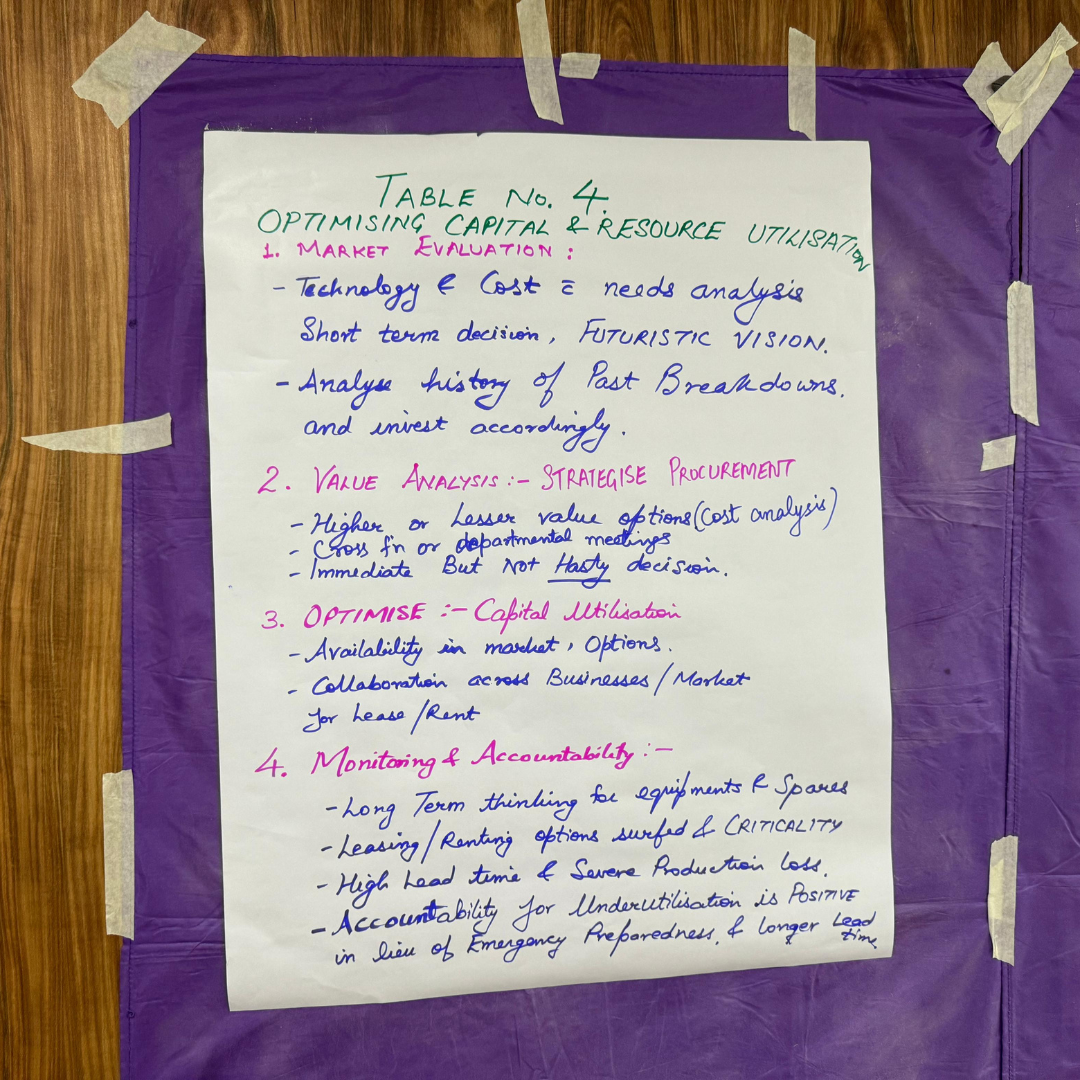 TABLE No. 4.
OPTIMISING CAPITAL & RESOURCE UTILISATION
1. MARKET EVALUATION :
- Technology & Cost c̄ needs analysis
Short term decision, FUTURISTIC VISION.
- Analyse history of Past Breakdowns.
and invest accordingly.
2. VALUE ANALYSIS :- STRATEGISE PROCUREMENT
- Higher or Lesser value options (Cost analysis)
- Cross f'n or departmental meetings
- Immediate But Not Hasty decision.
3. OPTIMISE :- Capital Utilisation
- Availability in market, Options.
- Collaboration across Businesses / Market
for Lease / Rent
4. Monitoring & Accountability :-
- Long Term thinking for equipments & Spares
- Leasing / Renting options surfed & CRITICALITY
- High Lead time & Severe Production loss.
- Accountability for Underutilisation is POSITIVE
in lieu of Emergency Preparedness, & longer Lead time.